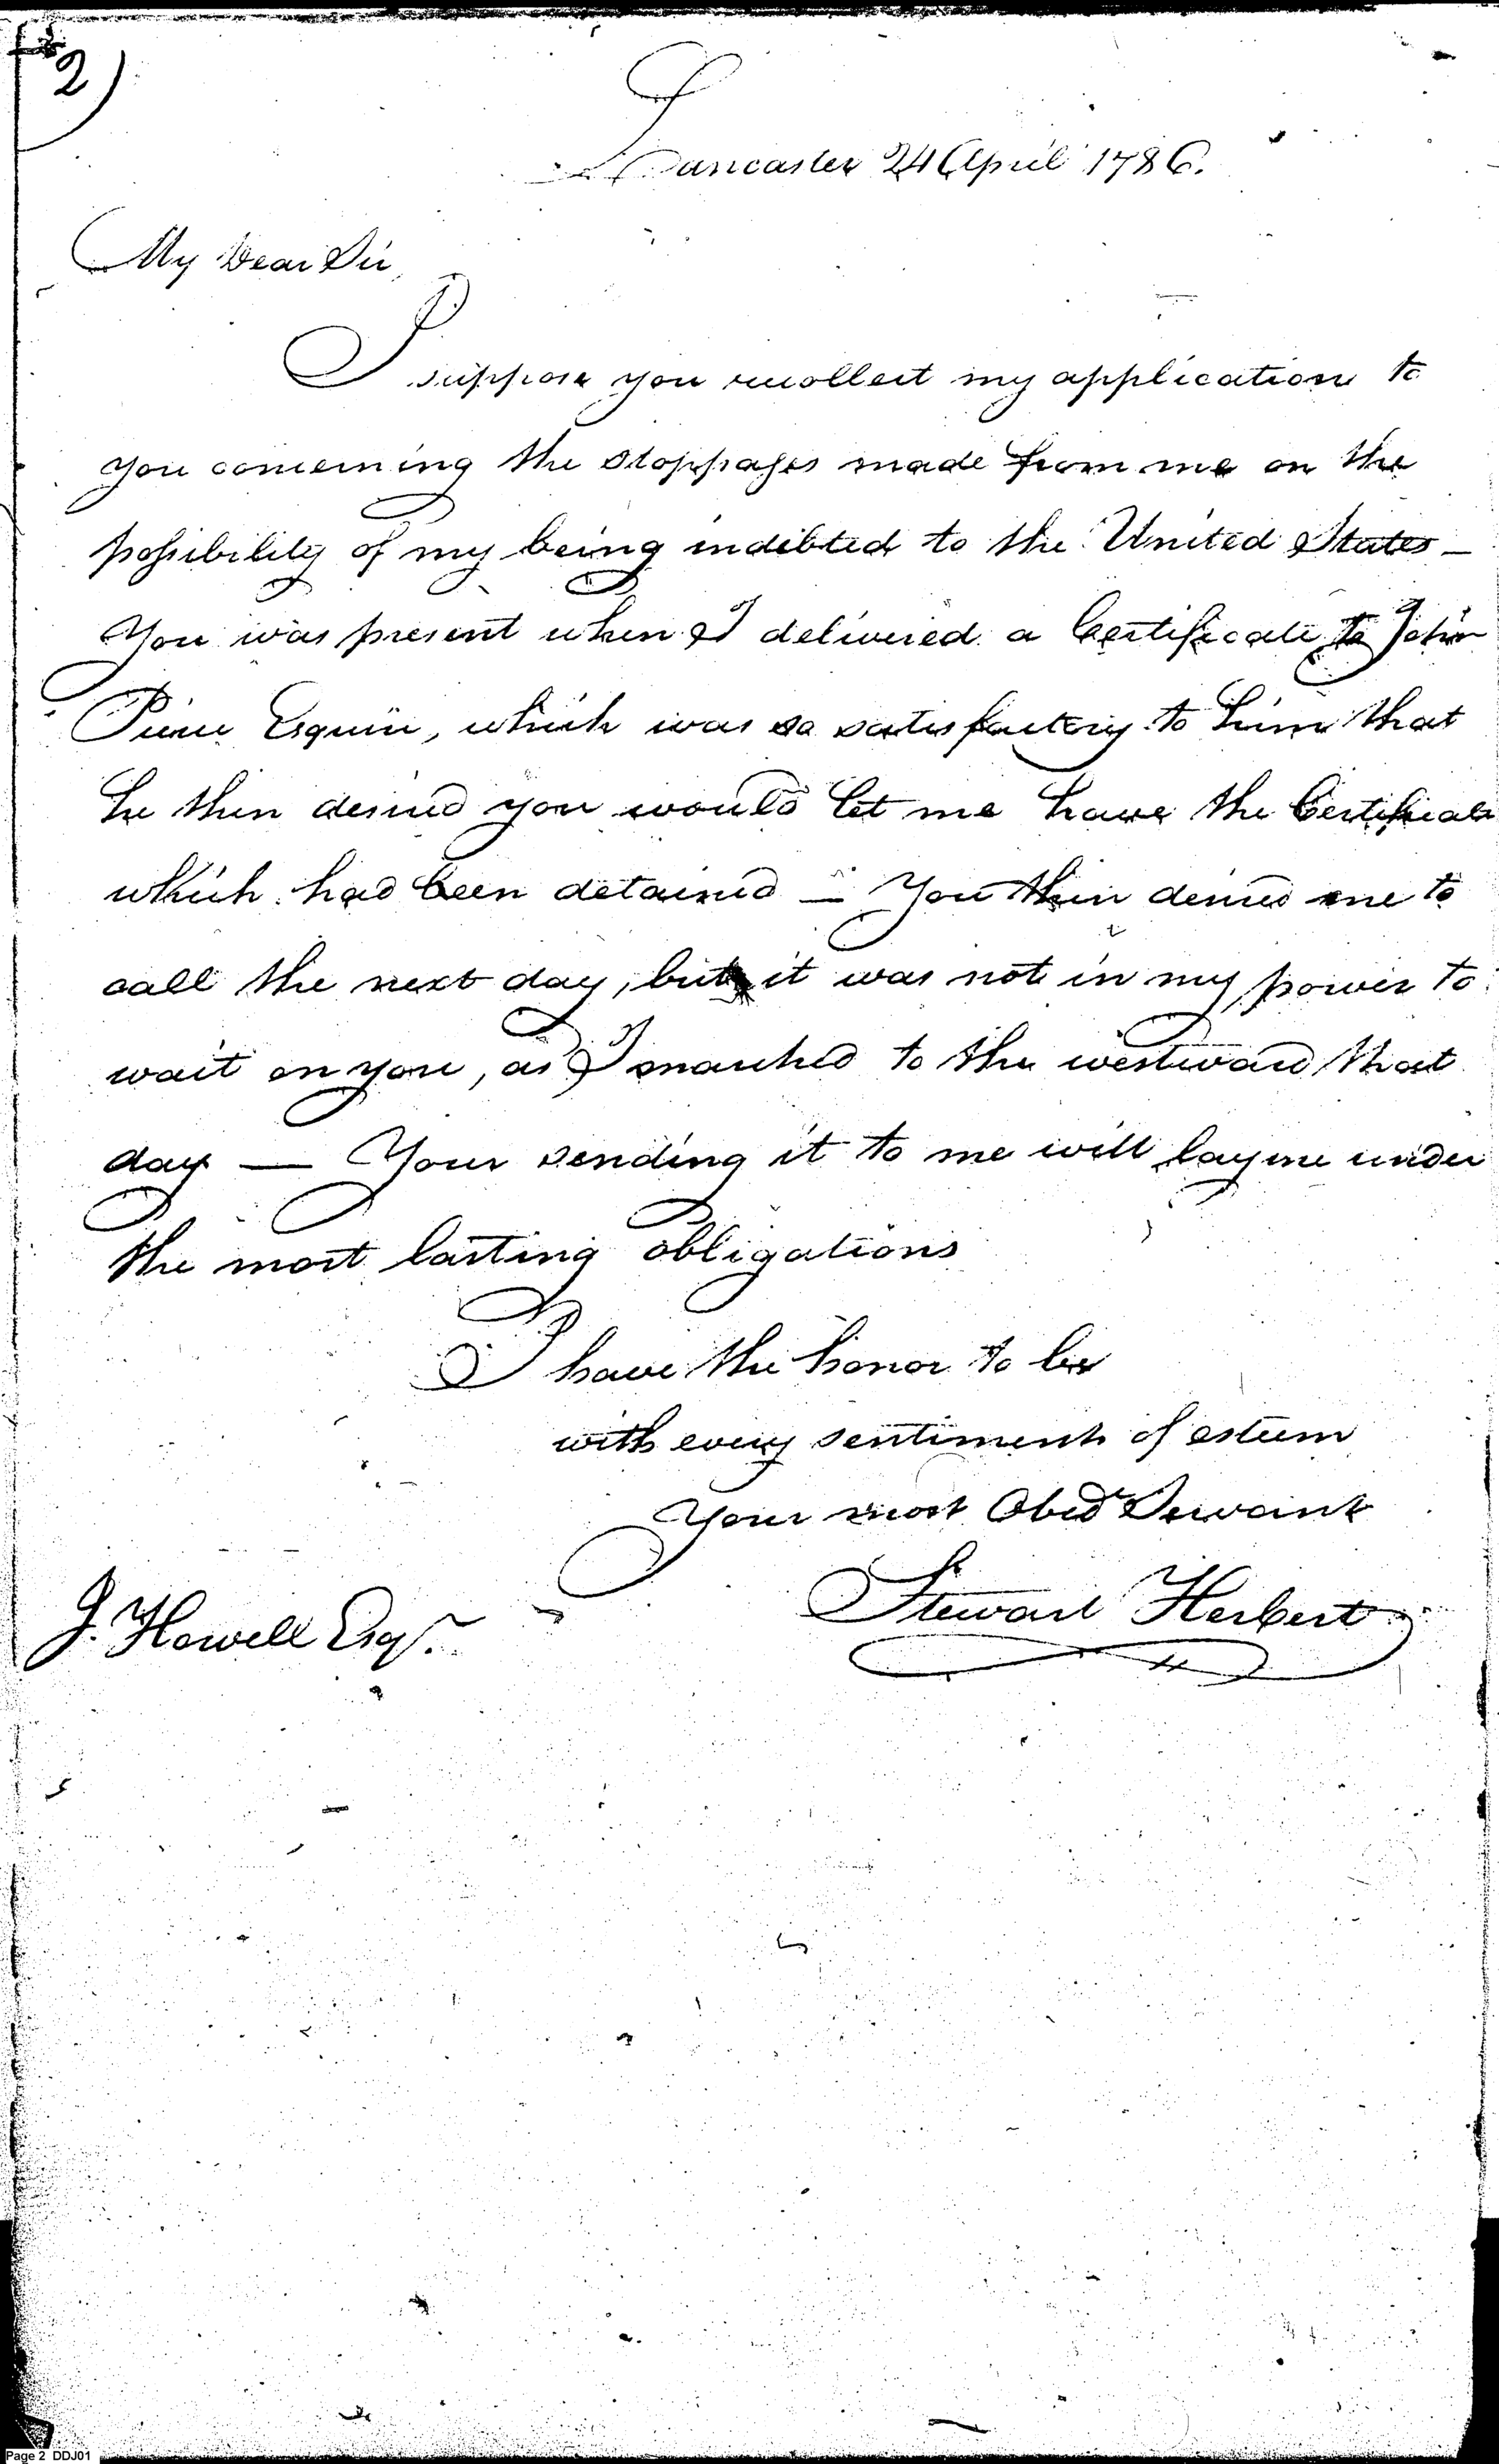 2)
Lancaster 24 April 1786.
My Dear Sir,
I suppose you recollect my application to
you concerning the stoppages made from me on the
possibility of my being indebted to the United States —
You was present when I delivered a Certificate to John
Pierce Esquire, which was so satisfactory to him that
he then desired you would let me have the Certificate
which had been detained — You then desired me to
call the next day, but it was not in my power to
wait on you, as I marched to the westward that
day — Your sending it to me will lay me under
the most lasting obligations
I have the honor to be
with every sentiment of esteem
Your most Obed Servant
Stewart Herbert
J. Howell Esqr.
Page 2 DDJ01